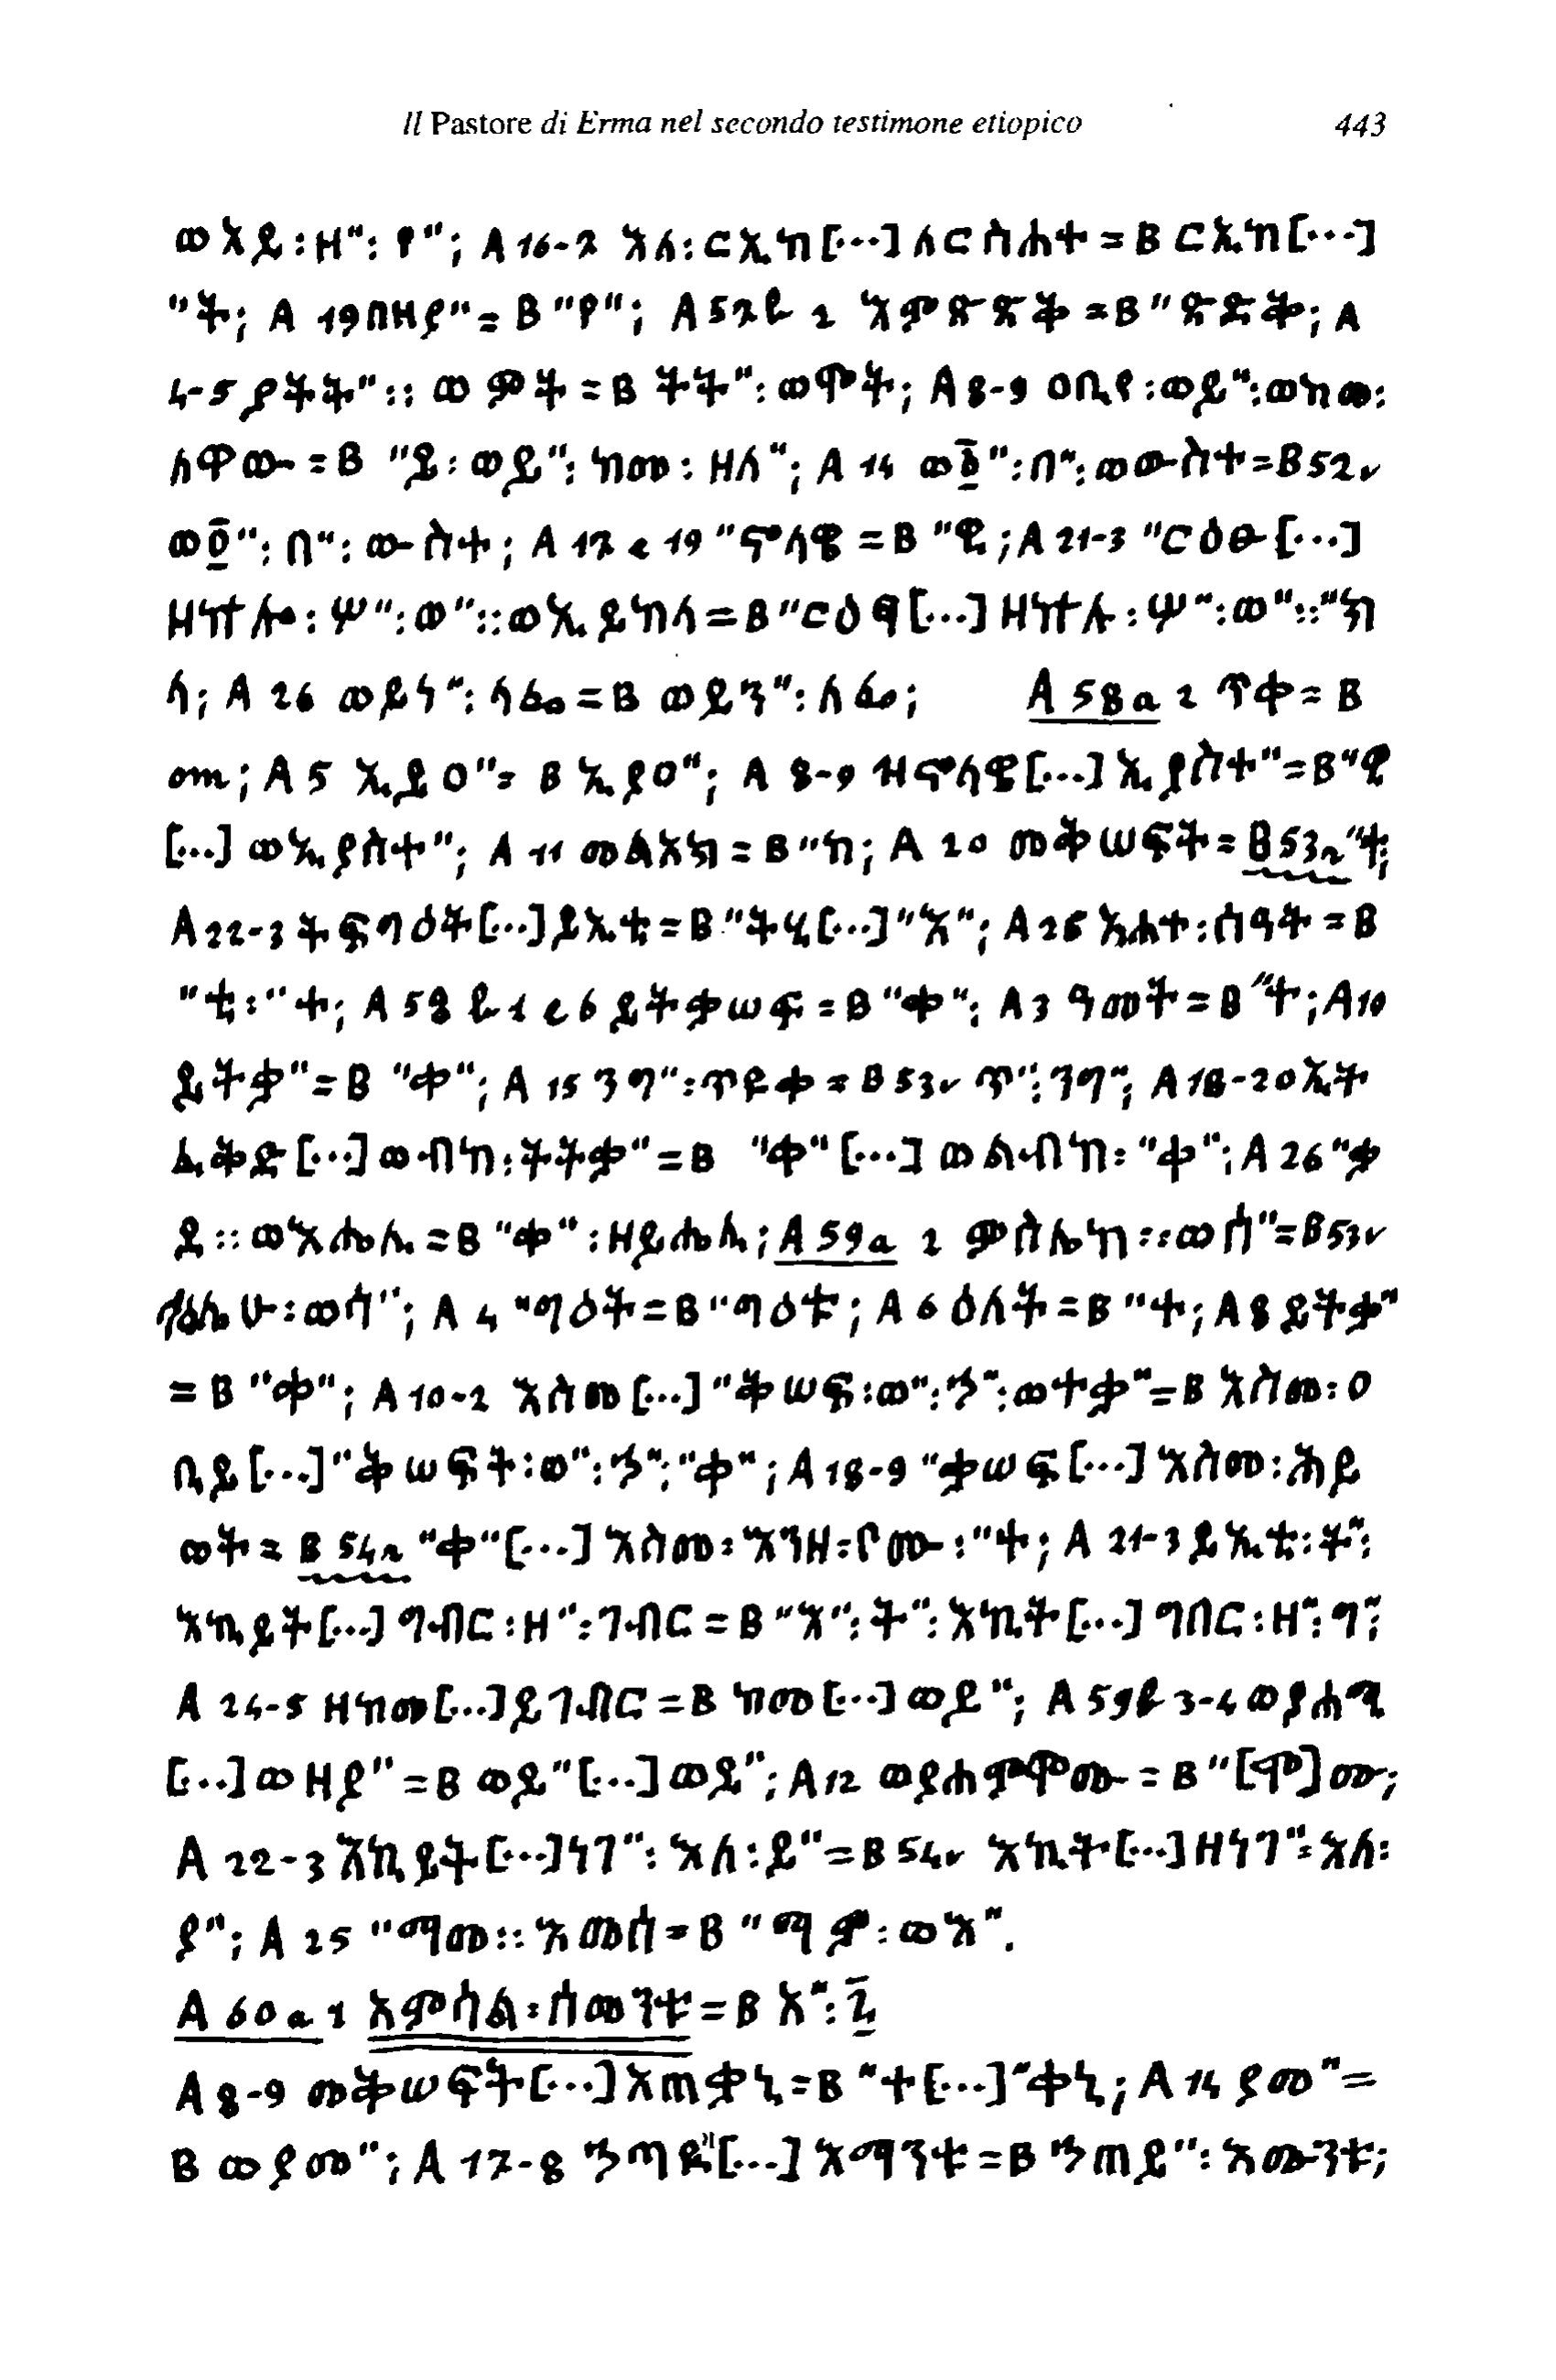 Il Pastore di Erma nel secondo testimone etiopico 443
ወእይ:ዘ":የ"; A 16-7 እለ:ርኢከ[...]ለርስሐተ = B ርኢከ[...]
"ት; A 19 በዘያ" = B "የ"; A 57b 2 እምጽድቅ = B "ጽድቅ; A
4-5 ያትት":: ወምት = B ትት": ወሞት; A 8-9 ዐቢየ:ወይ":ወከመ:
ለዋው = B "ይ:ወይ": ከመ:ዘለ"; A 14 ወ፩":በ":ወውስተ = B 52v
ወ፬":በ":ውስተ; A 17 e 19 "ኖላዊ = B "ዊ; A 21-3 "ርዕው[...]
ዘኵሎ:ሠ":ወ"::ወኢይክለ = B "ርዕዋ[...]ዘኵሉ:ሠ":ወ"::"ክ
ለ; A 26 ወይነ":ለፌ = B ወይን":ለፌ; A 58a 2 ጥቀ = B
om; A 5 ኢይዐ" = B ኢያዐ"; A 8-9 ዘኖላዊ[...]ኢያስተ" = B "ዊ
[...]ወኢያስተ"; A 11 መልአክ = B "ከ; A 20 መቅሠፍት = B 53r "ተ;
A 22-3 ትፍግዕት[...]ይእቲ = B "ትሂ[...]"እ"; A 25 አሐተ:ሰዓት = B
"ቲ:"ተ; A 58b 1 e 6 ይትቃሠፍ = B "ቀ"; A 3 ዓመት = B "ተ; A 10
ይትቃ" = B "ቀ"; A 15 ንግ":ጥዩቀ = B 53v ጥ":ንግ"; A 18-20 ኢት
ፈቅድ[...]ወብከ:ትትቃ" = B "ቀ"[...]ወልብከ:"ቀ"; A 26 "ቃ
ይ::ወእሎሉ = B "ቀ":ዘይሎሉ; A 59a 2 ምስሌከ::ወሰ" = B 53v
ምስሌሁ:ወሰ"; A 4 "ግዕት = B "ግዕቱ; A 6 ዕለት = B "ተ; A 8 ይትቃ"
= B "ቀ"; A 10-2 እስመ[...]"ቅሠፍ:ወ":ኵ":ወተቃ" = B እስመ:ዐ
ቢይ[...]"ቅሠፍት:ወ":ኵ":"ቀ"; A 18-9 "ቃሠፍ[...]እስመ:ሕይ
ወት = B 54r "ቀ"[...]እስመ:እንዘ:ቦሙ:"ተ; A 21-3 ይእቲ:ት":
እኪይት[...]ግብር:ዘ":ገብር = B "እ":ት":እኪት[...]ግበር:ዘ":ግ";
A 24-5 ዘከመ[...]ይገብር = B ከመ[...]ወይ"; A 59b 3-4 ወያሐማ
[...]ወዘያ" = B ወይ"[...]ወይ"; A 12 ወያሐምዎሙ = B "[ሞ]ሙ;
A 22-3 እኪይት[...]ነገ":እለ:ይ" = B 54v እኪት[...]ዘነገ":እለ:
የ"; A 25 "ማመ::አመሰ = B "ማም:ወአ".
A 60a 1 አምሳል:ሰመንቱ = B አ":፯
A 8-9 መቅሠፍት[...]አጠቃኒ = B "ተ[...]"ቀኒ; A 14 ያመ" =
B ወያመ"; A 17-8 ኵጣዬ"[...]እማንቱ = B ኵጠይ":እሙንቱ;